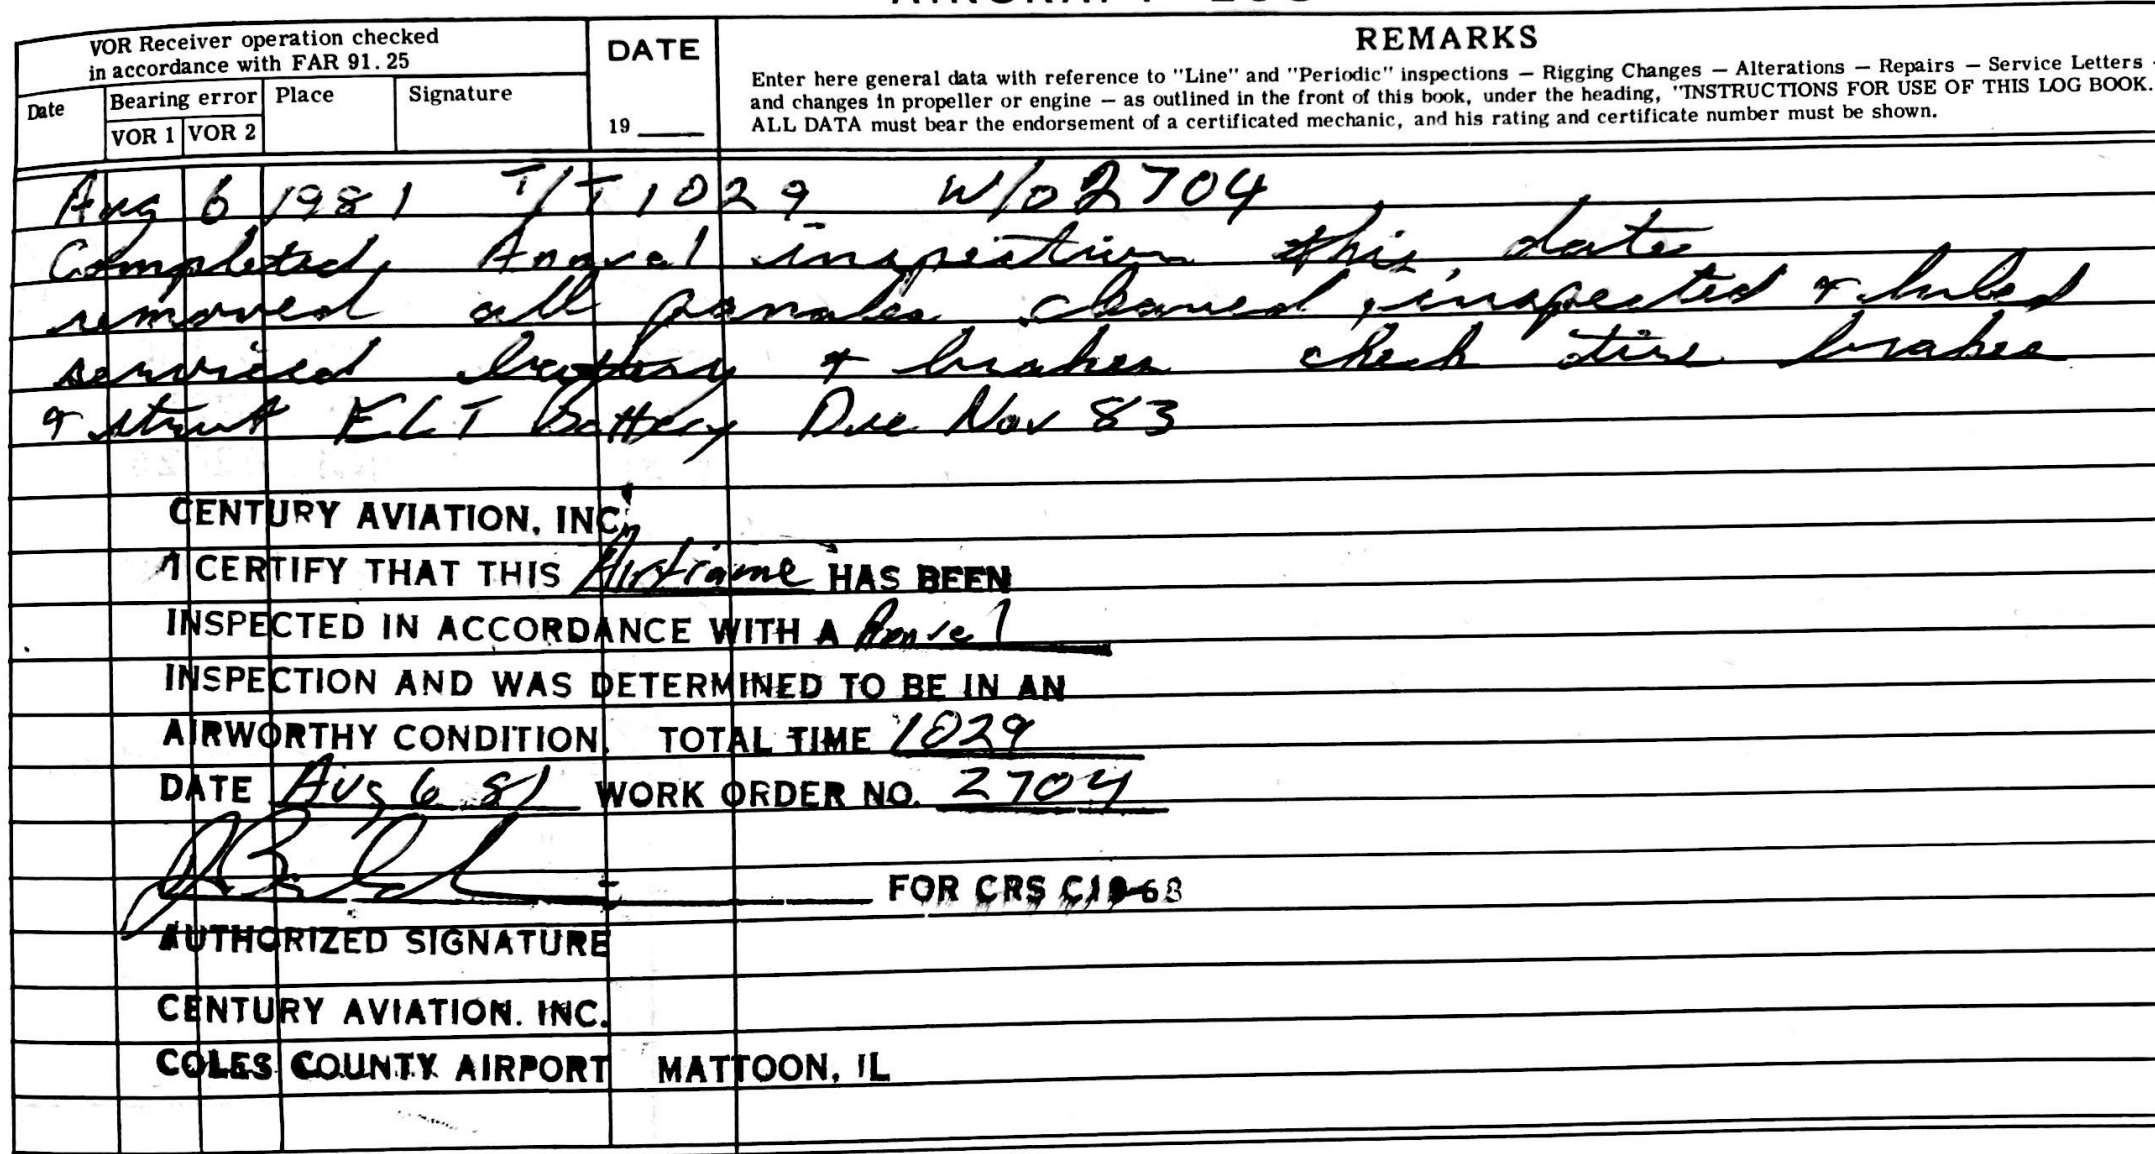 VOR Receiver operation checked
in accordance with FAR 91.25
Date
Bearing error
VOR 1 VOR 2
Place
Signature
DATE
19
REMARKS
Enter here general data with reference to "Line" and "Periodic" inspections — Rigging Changes — Alterations — Repairs — Service Letters -
and changes in propeller or engine — as outlined in the front of this book, under the heading, "INSTRUCTIONS FOR USE OF THIS LOG BOOK.
ALL DATA must bear the endorsement of a certificated mechanic, and his rating and certificate number must be shown.
Aug 6 1981 T/T 1029 W/o 2704
Completed Annual inspection this date
removed all panales cleaned, inspected & lubed
serviced battery & brakes check tire brakes
& strut ELT Battery Due Nov 83
CENTURY AVIATION, INC.
I CERTIFY THAT THIS Airframe HAS BEEN
INSPECTED IN ACCORDANCE WITH A Annual
INSPECTION AND WAS DETERMINED TO BE IN AN
AIRWORTHY CONDITION. TOTAL TIME 1029
DATE Aug 6 81 WORK ORDER NO. 2704
FOR CRS
AUTHORIZED SIGNATURE
CENTURY AVIATION. INC.
COLES COUNTY AIRPORT MATTOON, IL